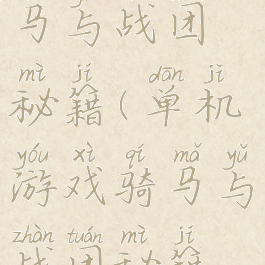 马与战团
mì jí dān jī
秘籍(单机
yóu xì qí mǎ yǔ
游戏骑马与
zhàn tuán mì jí
战团秘籍